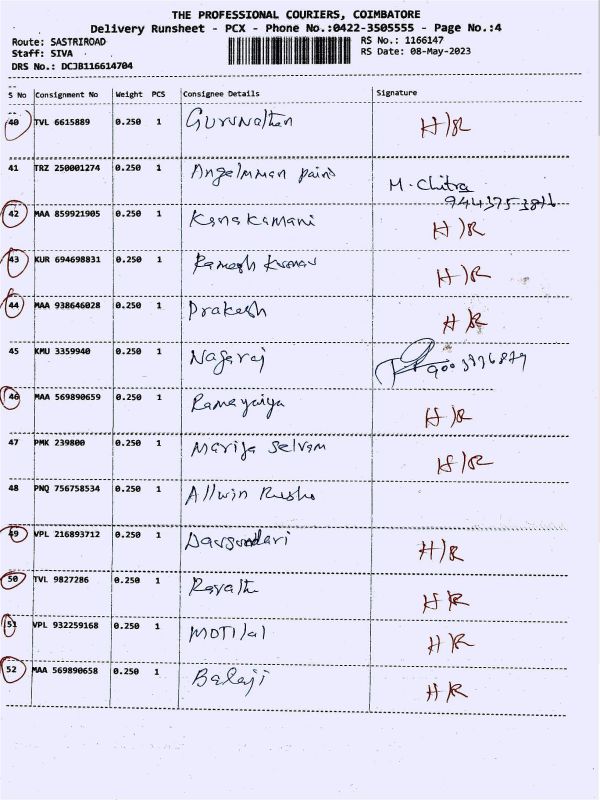 THE PROFESSIONAL COURIERS, COIMBATORE
Delivery Runsheet - PCX - Phone No.:0422-3505555 - Page No.:4
Route: SASTRIROAD RS No.: 1166147
Staff: SIVA RS Date: 08-May-2023
DRS No.: DCJB116614704
S No Consignment No Weight PCS Consignee Details Signature
40 TVL 6615889 0.250 1 Gurunathan H/R
41 TRZ 250001274 0.250 1 M. Chitra
42 MAA 859921905 0.250 1 Kanakamani H/R
43 KUR 694698831 0.250 1 Ramesh Kumar H/R
44 MAA 938646028 0.250 1 Prakash H/R
45 KMU 3359940 0.250 1 Nagaraj
46 MAA 569890659 0.250 1 Ramayaiya H/R
47 PMK 239800 0.250 1 Mariya Selvam H/R
48 PNQ 756758534 0.250 1 Allwin
49 VPL 216893712 0.250 1 H/R
50 TVL 9827286 0.250 1 H/R
51 VPL 932259168 0.250 1 Motilal H/R
52 MAA 569890658 0.250 1 Balaji H/R